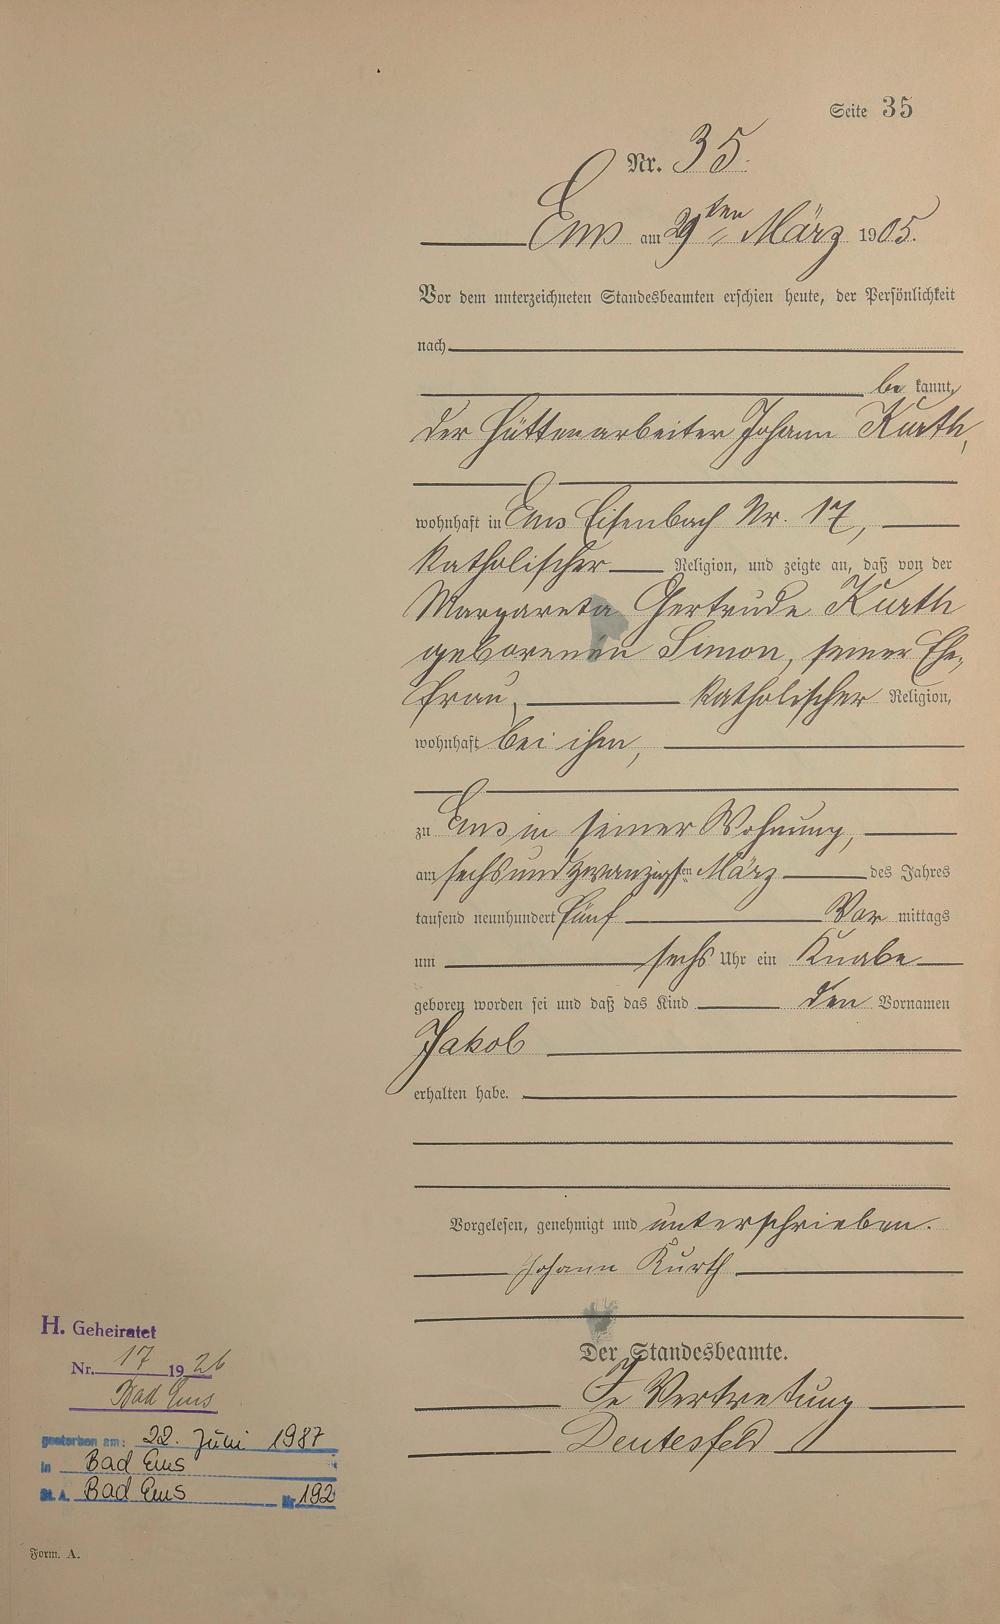 Seite 35
Nr. 35.
Ems am 29ten März 1905.
Vor dem unterzeichneten Standesbeamten erschien heute, der Persönlichkeit
nach
be kannt,
der Hüttenarbeiter Johann Kurth,
wohnhaft in Ems Eisenbach Nr. 17,
katholischer Religion, und zeigte an, daß von der
Margareta Gertrude Kurth
geborenen Simon, seiner Ehe-
frau, katholischer Religion,
wohnhaft bei ihm,
zu Ems in seiner Wohnung,
am sechsundzwanzigsten März des Jahres
tausend neunhundert fünf Vor mittags
um sechs Uhr ein Knabe
geboren worden sei und daß das Kind den Vornamen
Jakob
erhalten habe.
Vorgelesen, genehmigt und unterschrieben.
Johann Kurth
Der Standesbeamte.
In Vertretung
Deutesfeld
H. Geheiratet
Nr. 17 1926
Bad Ems
gestorben am: 22. Juni 1987
in Bad Ems
St. A. Bad Ems Nr. 192
Form. A.